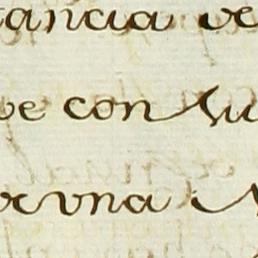 tancia de
ve con su
r vna